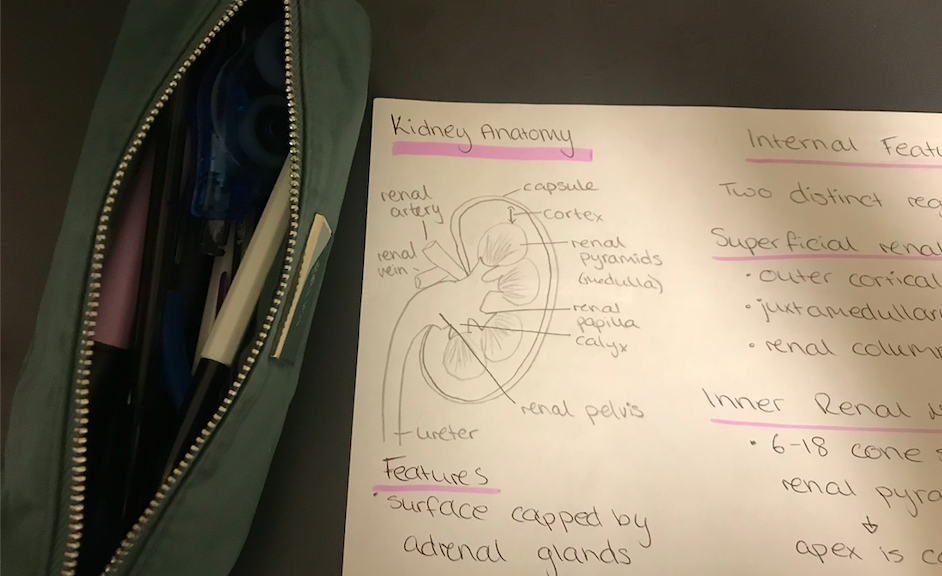 Kidney Anatomy
renal
artery
renal
vein
capsule
cortex
renal
pyramids
(medulla)
renal
papilla
calyx
renal pelvis
ureter
Features
• surface capped by
adrenal glands
Internal
Two distinct
Superficial renal
• outer cortical
•
• renal
Inner Renal
• 6-18 cone
renal
↓
apex is